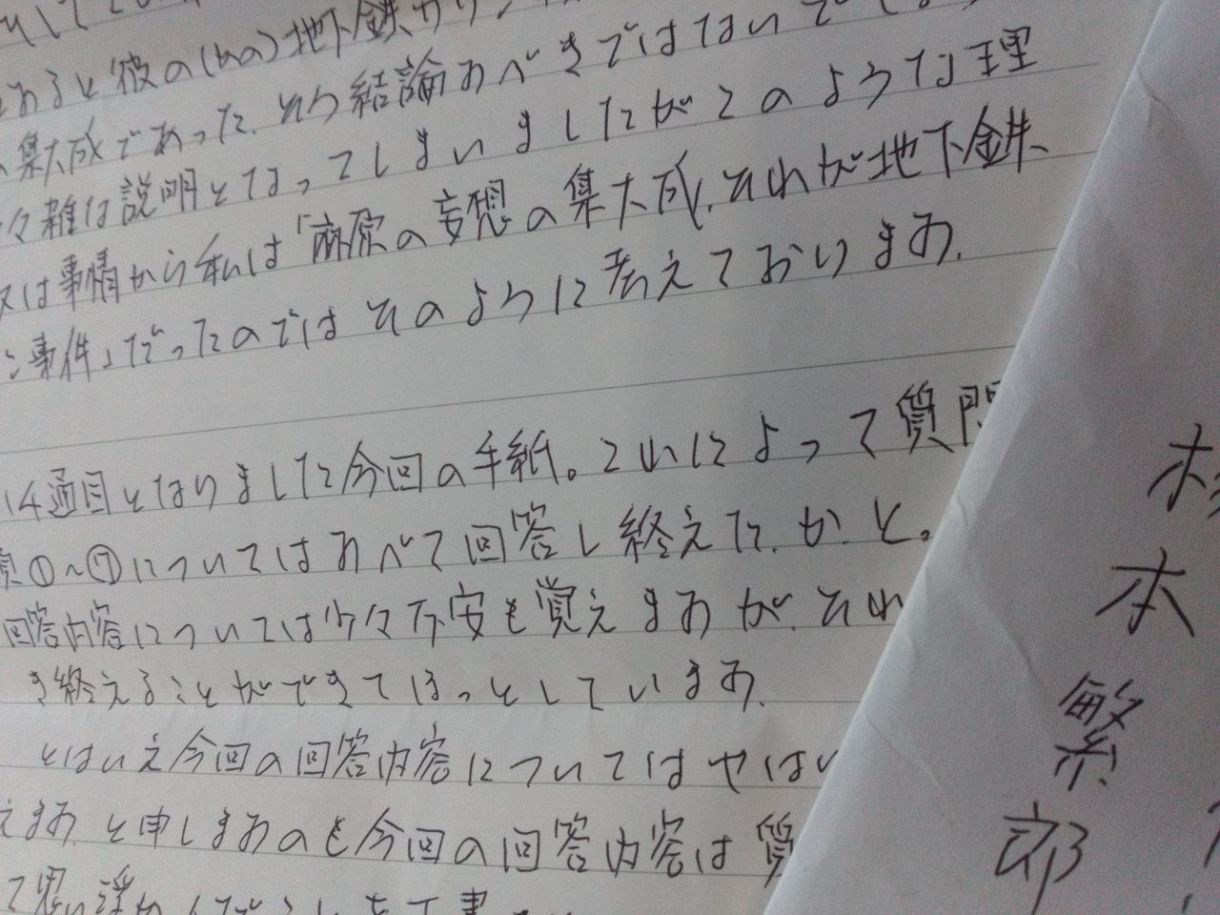 あると彼の(あの)地下鉄サリン
集大成であった、そう結論すべきではないで
々雑な説明となってしまいましたがこのような理
事情から私は「麻原の妄想の集大成、それが地下鉄
事件」だったのではそのように考えております。
14通目となりました今回の手紙。これによって質問
①〜⑦についてはすべて回答し終えた、かと。
回答内容については少々不安も覚えますが、それ
き終えることができてほっとしています。
とはいえ今回の回答内容についてはやはい
えます。と申しますのも今回の回答内容は質
て思い浮か
本
繁
郎